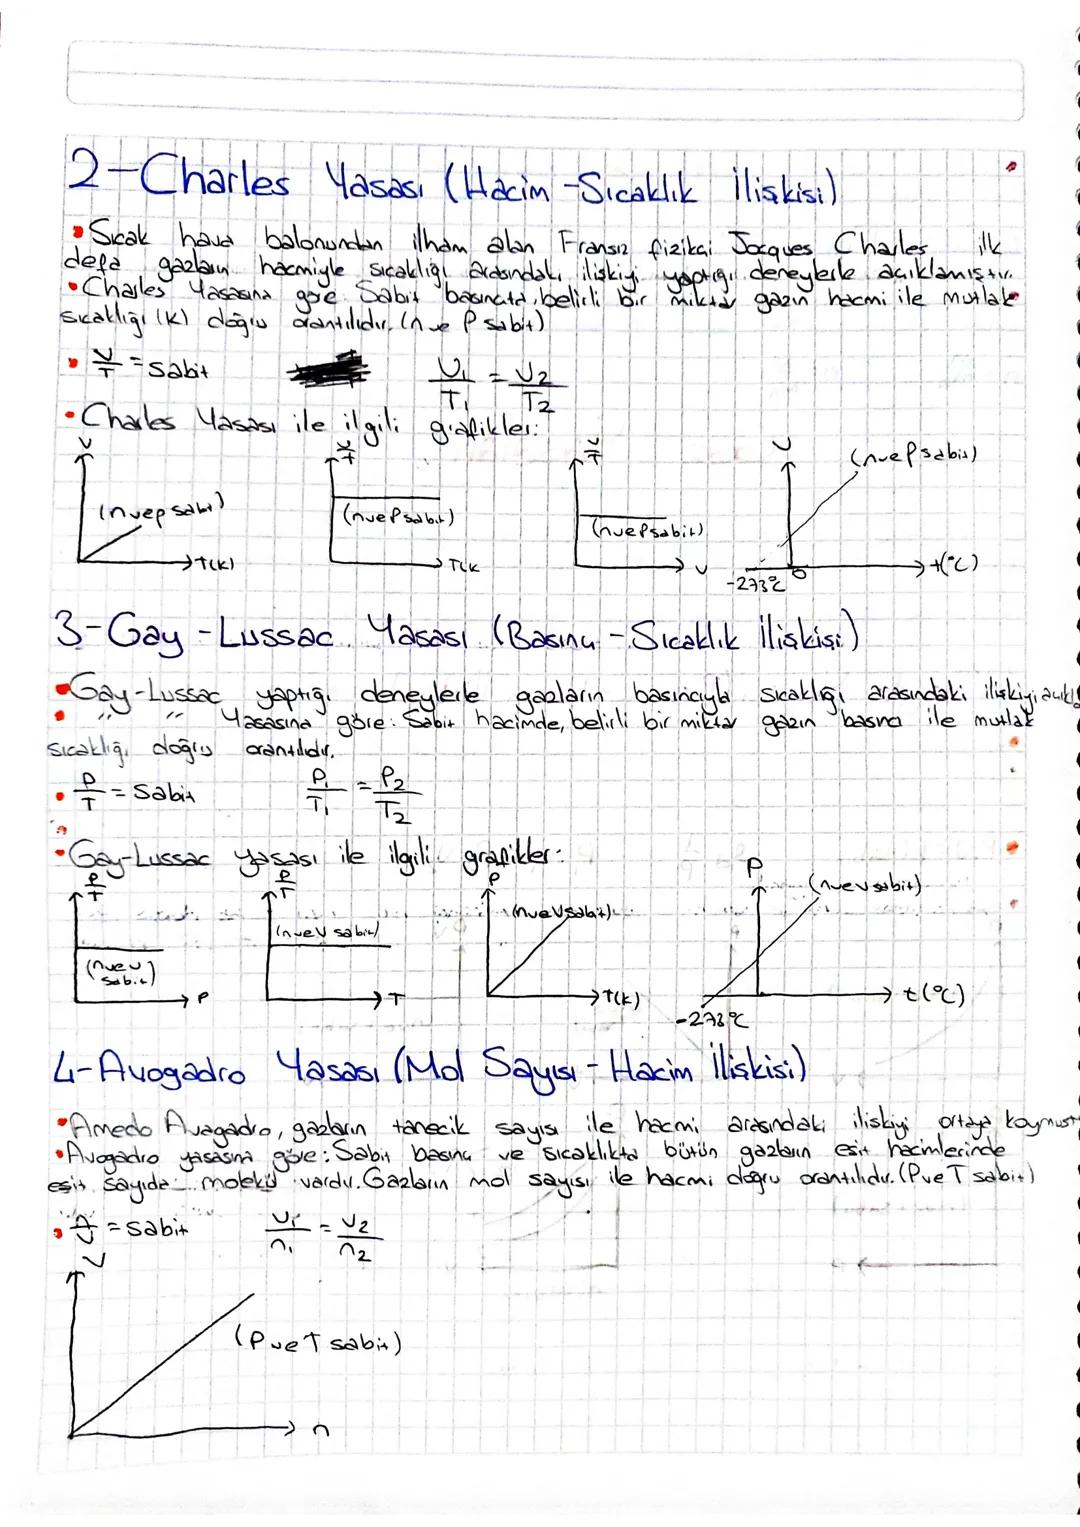 2-Charles Yasası (Hacim-Sıcaklık İlişkisi)
• Sıcak hava balonundan ilham alan Fransız fizikçi Jacques Charles ilk
defa gazların hacmiyle sıcaklığı arasındaki ilişkiyi yaptığı deneylerle açıklamıştır.
• Charles Yasasına göre Sabit basınçta, belirli bir miktar gazın hacmi ile mutlak
sıcaklığı (K) doğru orantılıdır. (n ve P sabit)
• V/T = sabit V1/T1 = V2/T2
• Charles Yasası ile ilgili grafikler:
V V/T V/T V
(n ve P sabit) (n ve P sabit) (n ve P sabit) (n ve P sabit)
T(K) T(K V t(°C)
-273°C 0
3-Gay-Lussac Yasası (Basınç-Sıcaklık İlişkisi)
• Gay-Lussac yaptığı deneylerle gazların basıncıyla sıcaklığı arasındaki ilişkiyi
• " " Yasasına göre: Sabit hacimde, belirli bir miktar gazın basıncı ile mutlak
sıcaklığı doğru orantılıdır.
• P/T = Sabit P1/T1 = P2/T2
• Gay-Lussac yasası ile ilgili grafikler:
P/T P/T P P
(n ve V sabit) (n ve V sabit) (n ve V sabit) (n ve V sabit)
P T T(K) t(°C)
-273°C
4-Avogadro Yasası (Mol Sayısı-Hacim İlişkisi)
• Amedo Avagadro, gazların tanecik sayısı ile hacmi arasındaki ilişkiyi ortaya
• Avogadro yasasına göre: Sabit basınç ve sıcaklıkta bütün gazların eşit hacimlerinde
eşit sayıda molekül vardır. Gazların mol sayısı ile hacmi doğru orantılıdır. (P ve T sabit)
• = sabit V1/n1 = V2/n2
V
(P ve T sabit)
n